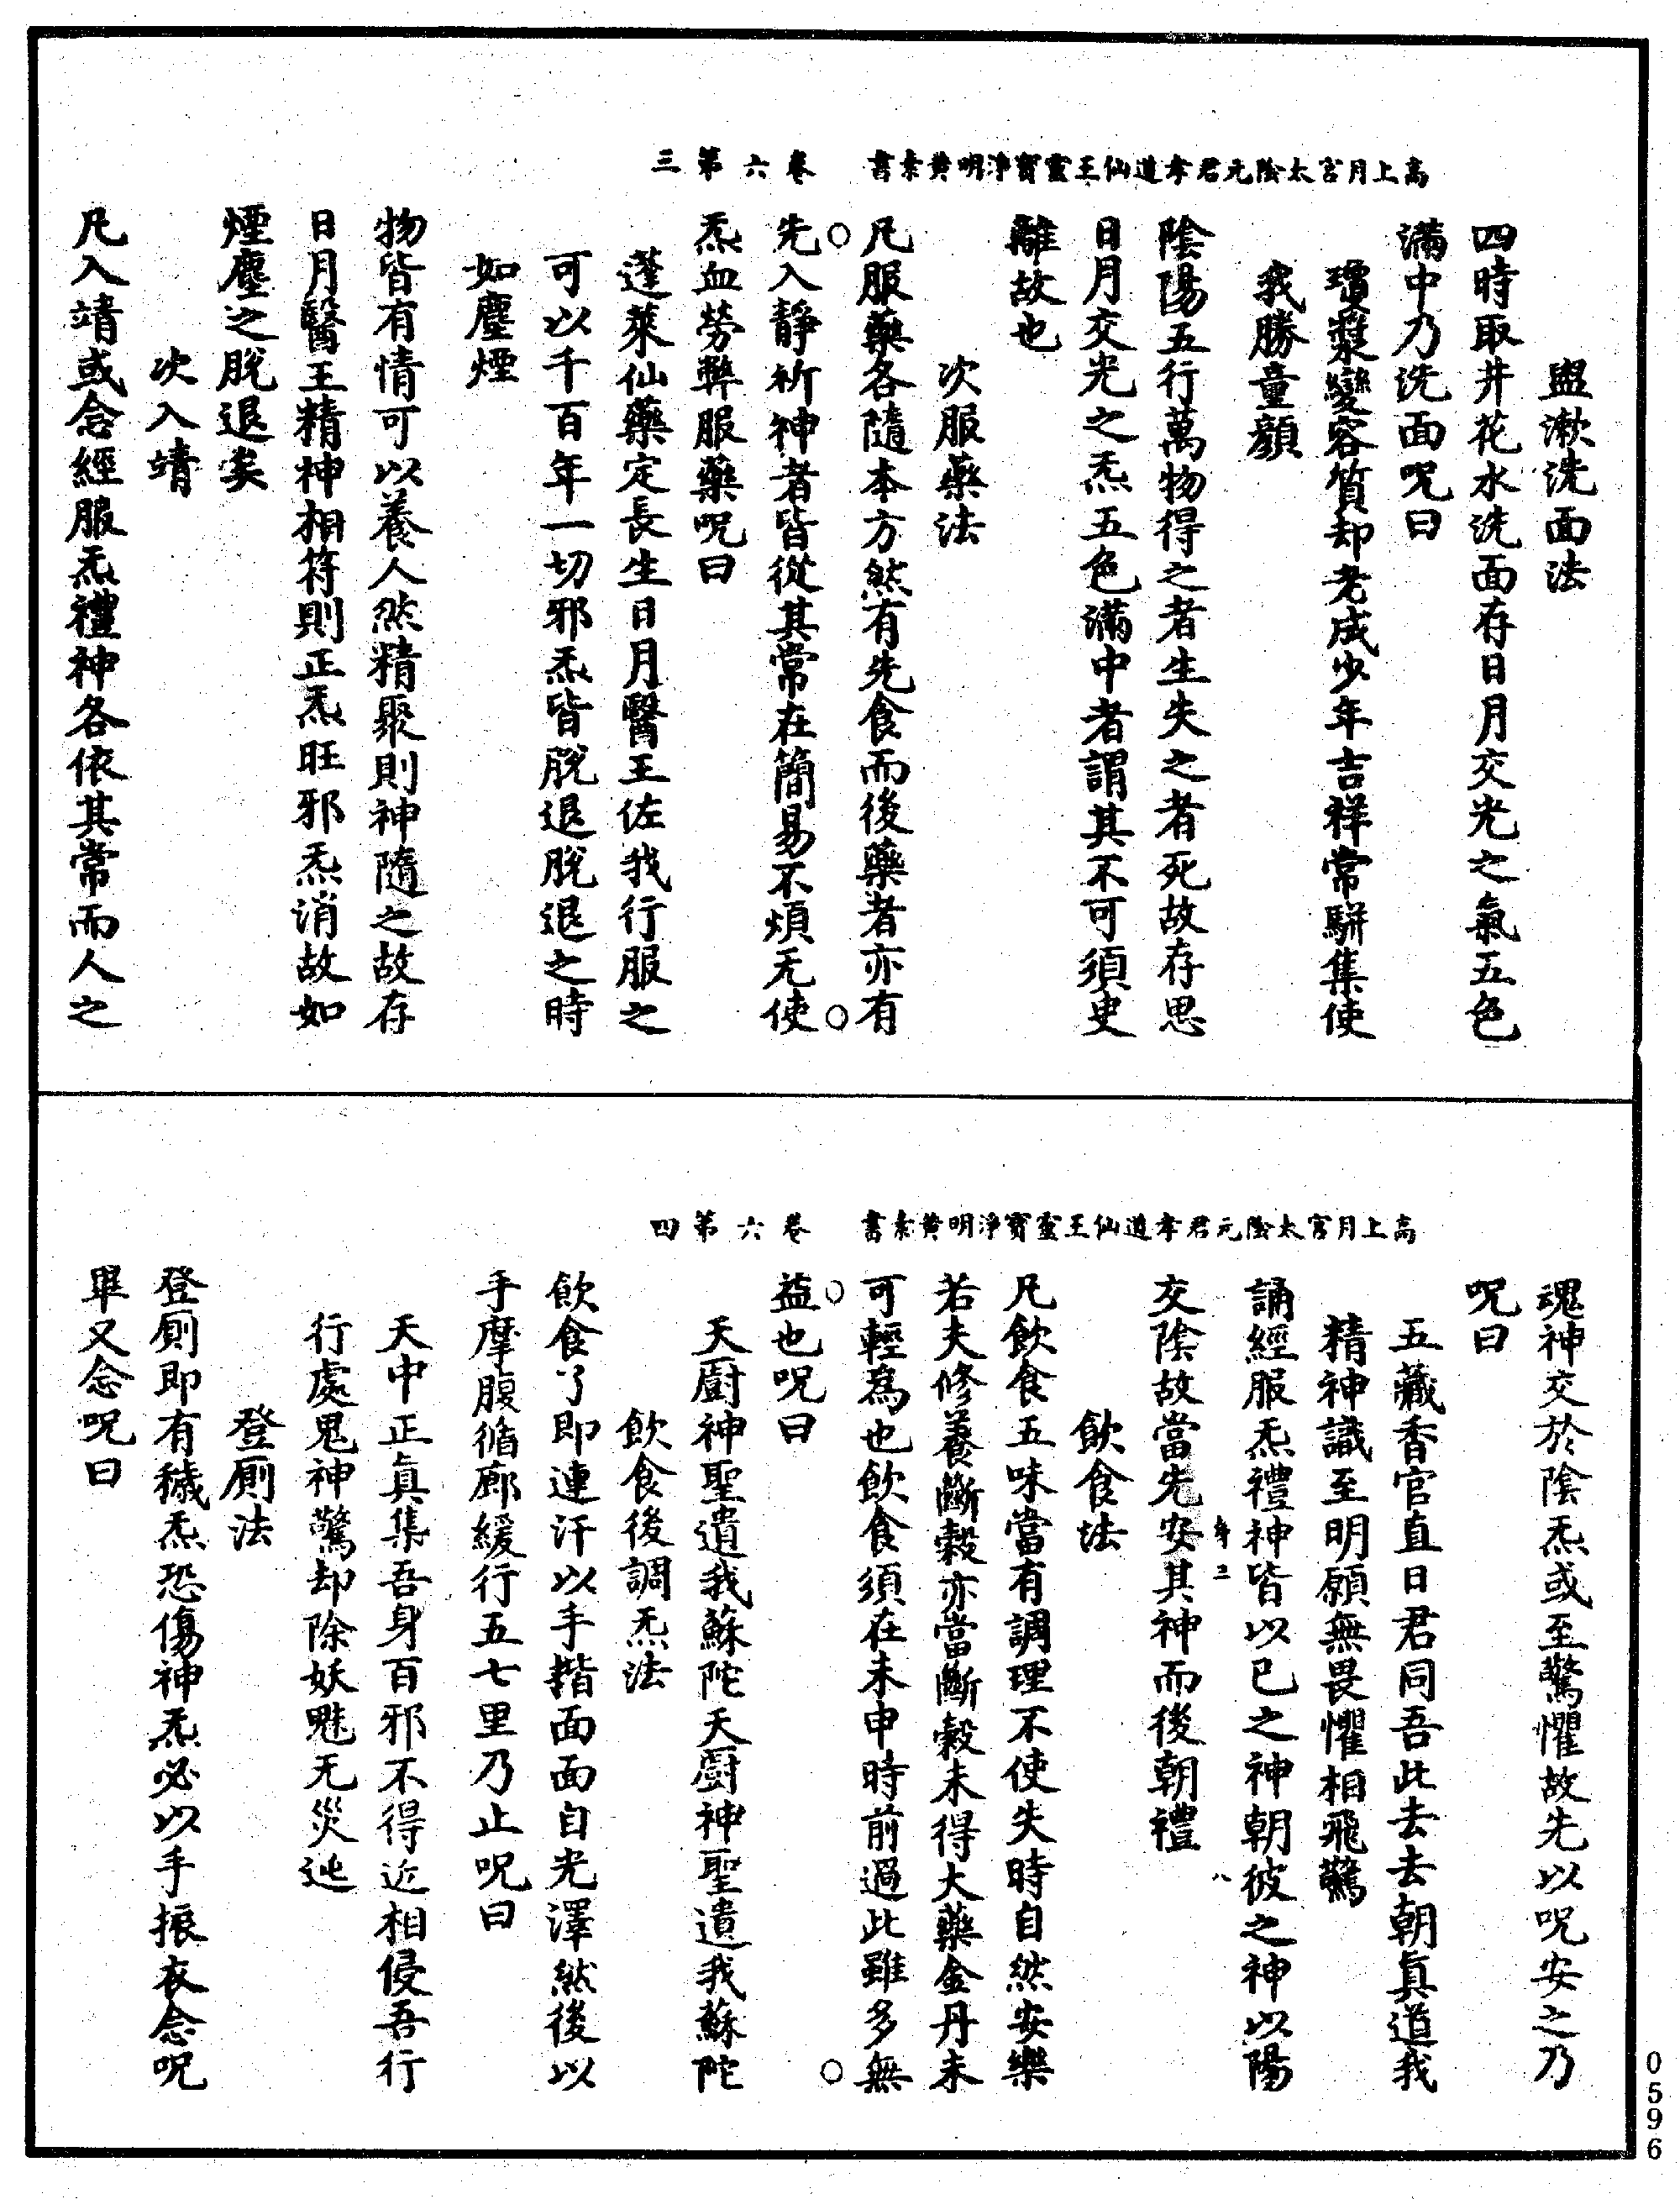 高上月宮太陰元君孝道仙王靈寶淨明黃素書　卷六第三
盥漱洗面法
四時取井花水洗面存日月交光之氣五色
滿中乃洗面呪曰
瓊漿變容質却老成少年吉祥常駢集使
我勝童顏
陰陽五行萬物得之者生失之者死故存思
日月交光之炁五色滿中者謂其不可須臾
離故也
次服藥法
凡服藥各隨本方然有先食而後藥者亦有
先入靜祈神者皆從其常在簡易不煩无使
炁血勞弊服藥呪曰
蓬萊仙藥定長生日月醫王佐我行服之
可以千百年一切邪炁皆脫退脫退之時
如塵煙
物皆有情可以養人然精聚則神隨之故存
日月醫王精神相符則正炁旺邪炁消故如
煙塵之脫退矣
次入靖
凡入靖或念經服炁禮神各依其常而人之
高上月宮太陰元君孝道仙王靈寶淨明黃素書　卷六第四
魂神交於陰炁或至驚懼故先以呪安之乃
呪曰
五藏香官直日君同吾此去去朝真道我
精神識至明願無畏懼相飛驚
誦經服炁禮神皆以已之神朝彼之神以陽
交陰故當先安其神而後朝禮
飲食法
凡飲食五味當有調理不使失時自然安樂
若夫修養斷穀亦當斷穀未得大藥金丹未
可輕為也飲食須在未申時前過此雖多無
益也呪曰
天廚神聖遺我蘇陀天廚神聖遺我蘇陀
飲食後調炁法
飲食了即連汗以手揩面面自光澤然後以
手摩腹循廊緩行五七里乃止呪曰
天中正真集吾身百邪不得近相侵吾行
行處鬼神驚却除妖魁无災迍
登廁法
登廁即有穢炁恐傷神炁必以手振衣念呪
畢又念呪曰
0596